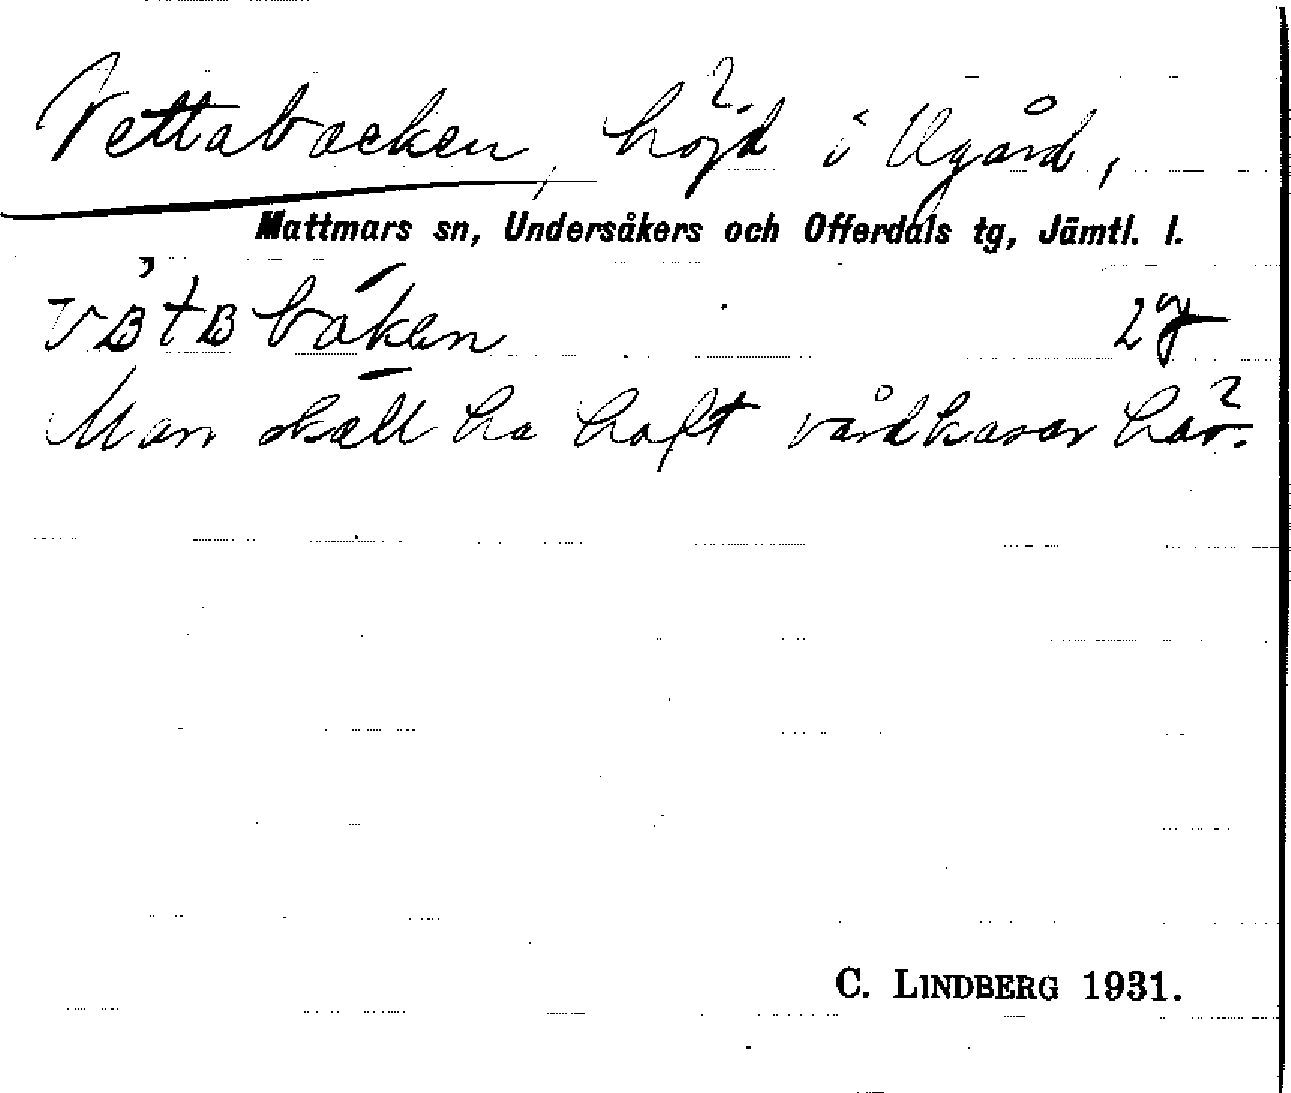 Vettabacken, höjd i Ugård,
Mattmars sn, Undersåkers och Offerdals tg, Jämtl. l.
vʙ̀tʙbaken 2g
Man skall ha haft vårdkasar här.
C. LINDBERG 1931.